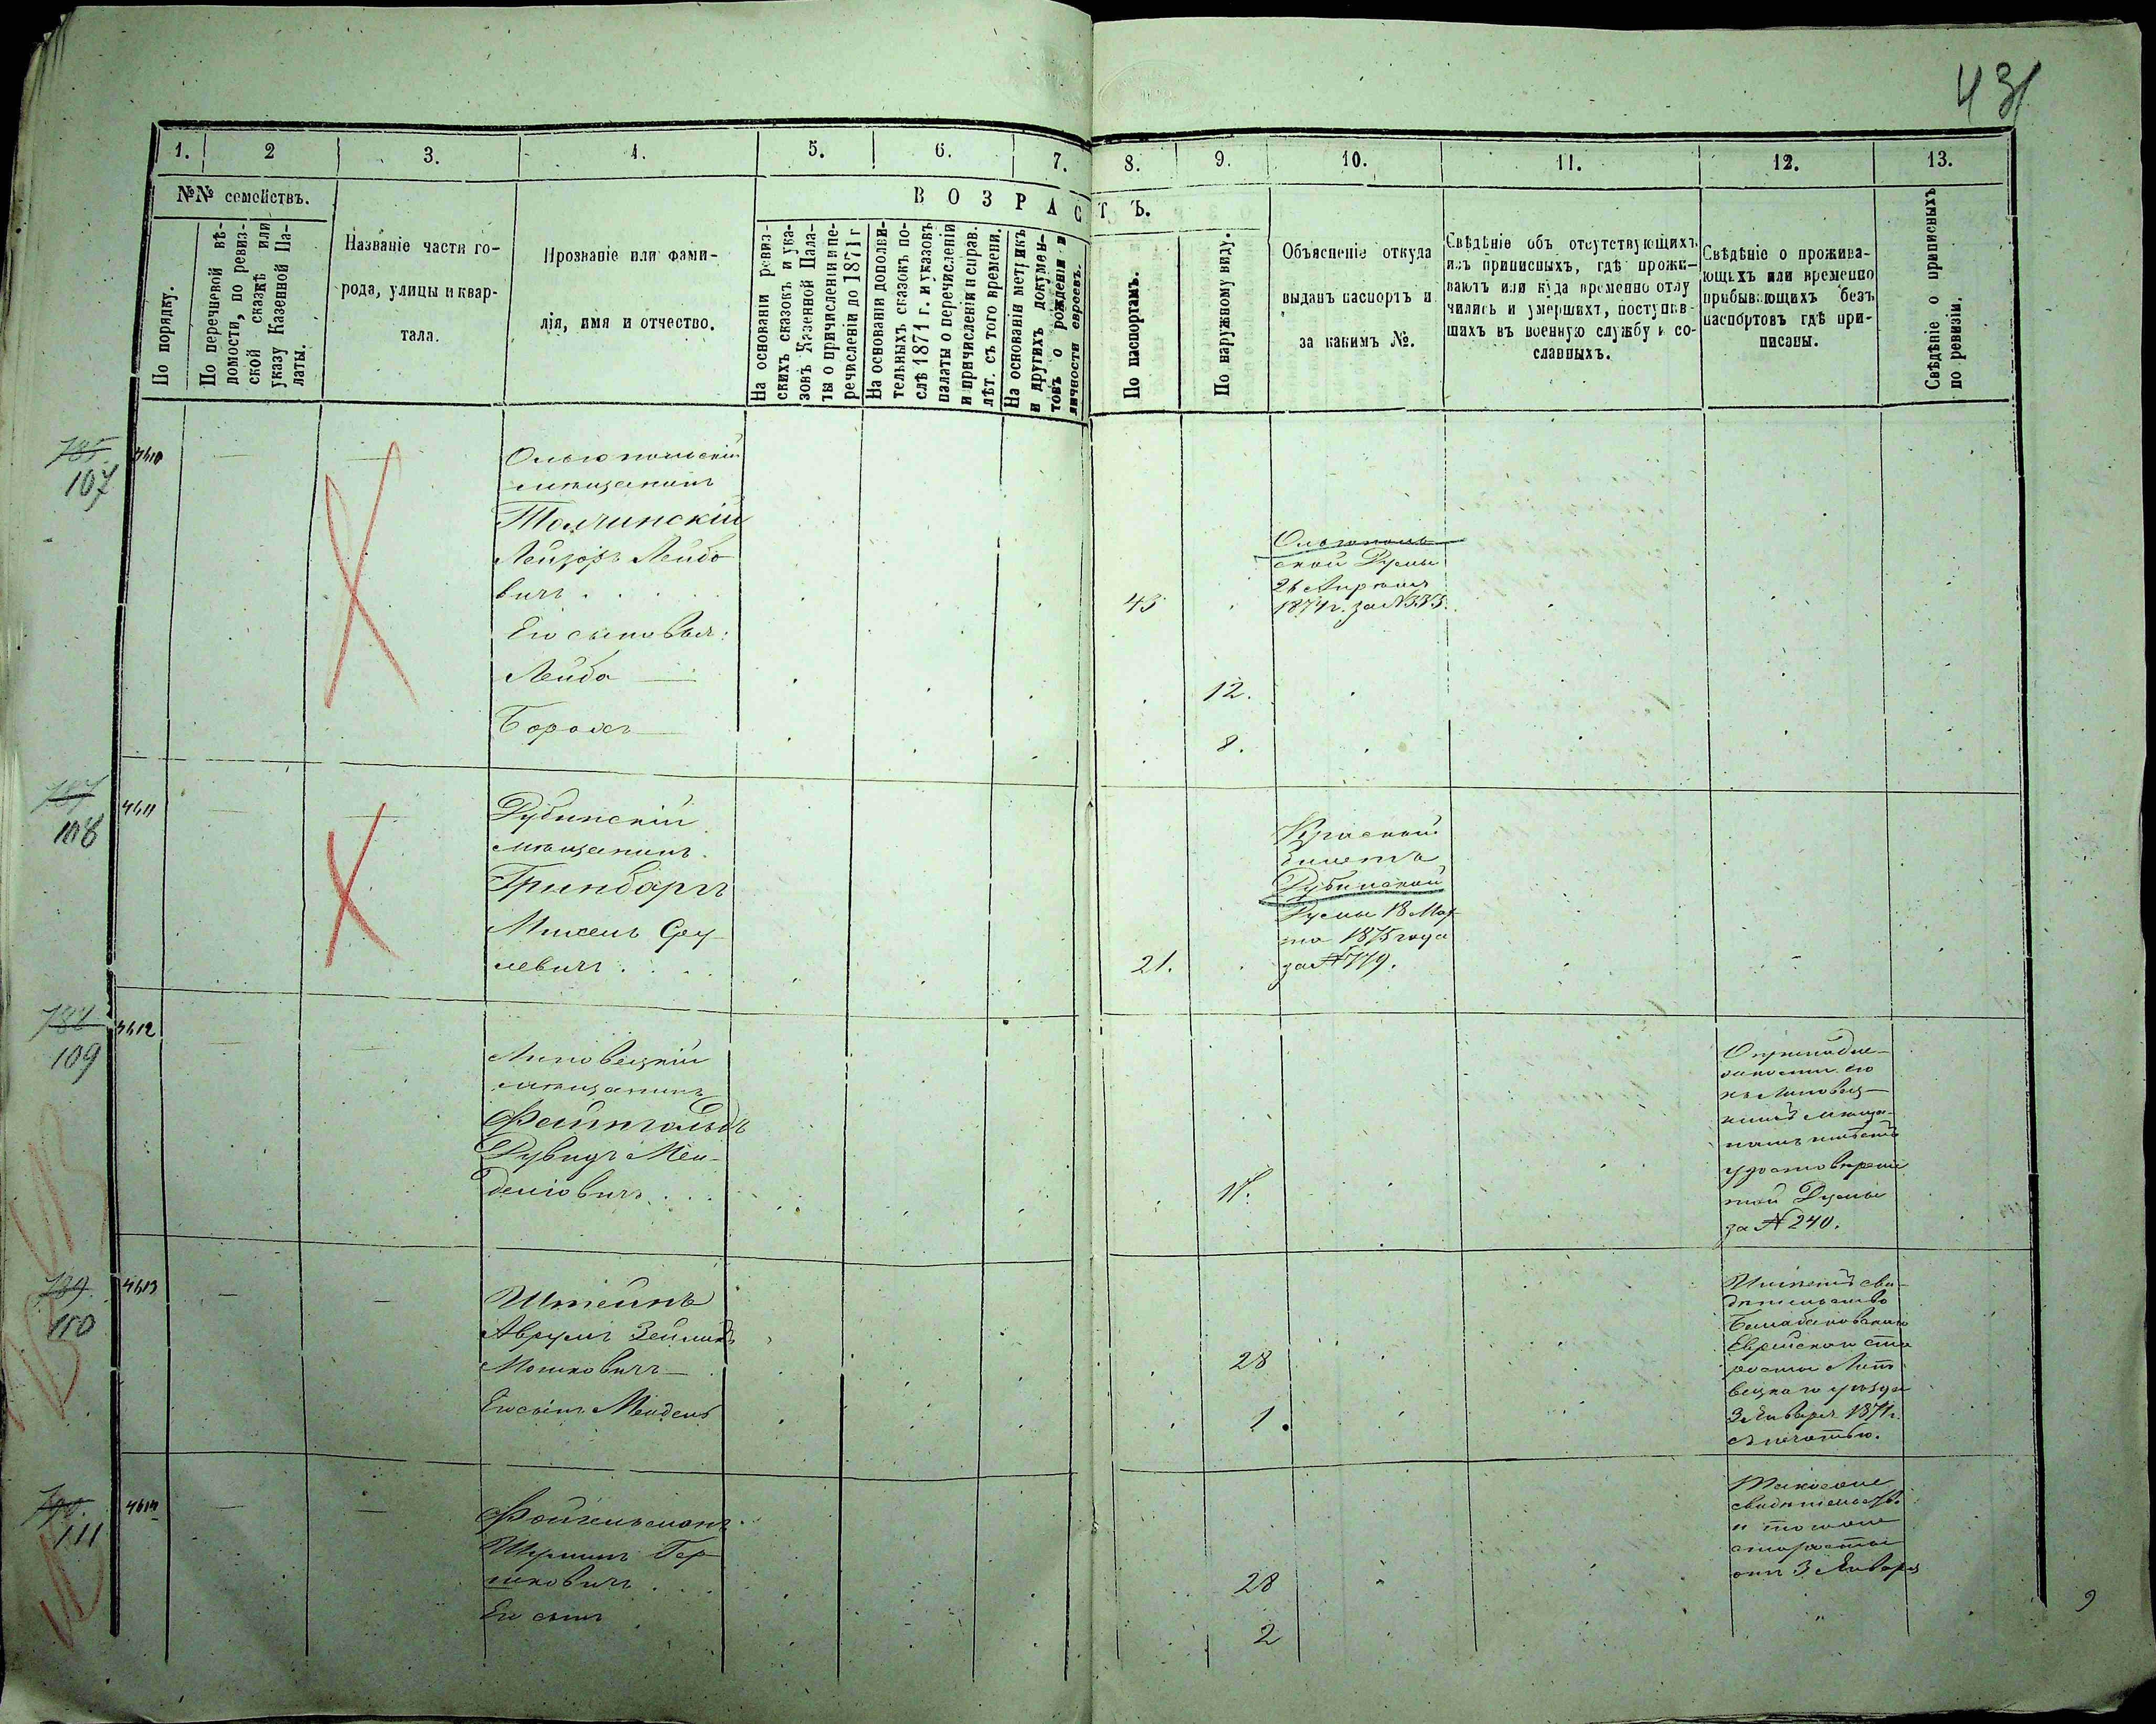 431
1. 2 3. 4. 5. 6. 7. 8. 9. 10. 11. 12. 13.
№№ семействъ.
В О З Р А С Т Ъ.
По порядку.
По перечневой вѣ-
домости, по ревиз-
ской сказкѣ или
указу Казенной Па-
латы.
Названіе части го-
рода, улицы и квар-
тала.
Прозваніе или фами-
лія, имя и отчество.
На основаніи ревиз-
скихъ сказокъ и ука-
зовъ Казенной Пала-
ты о причисленіи и пе-
речисленіи до 1871 г
На основаніи дополни-
тельныхъ сказокъ по-
слѣ 1871 г. и указовъ
палаты о перечисленіи
и причисленіи и справ.
лѣт. съ того времени.
На основаніи метрикъ
и другихъ докумен-
товъ о рожденіи и
личности евреевъ.
По паспортамъ.
По наружному виду.
Объясненіе откуда
выданъ паспортъ и
за какимъ №.
Свѣдѣніе объ отсутствующихъ
изъ приписныхъ, гдѣ прожи-
ваютъ или куда временно отлу
чились и умершихъ, поступив-
шихъ въ военную службу и со-
славныхъ.
Свѣдѣніе о прожива-
ющихъ или временно
прибывающихъ безъ
паспортовъ гдѣ при-
писаны.
Свѣдѣніе о приписныхъ
по ревизіи.
107
4610
Ольгопольскій
мѣщанинъ
Толчинскій
Лейзоръ Лейбо
вичъ
Его сыновья:
Лейба
Борохъ
43
12.
8.
Ольгополь
ской Думы
26 Апрѣля
1874 г. за № 333.
108
4611
Дубинскій
мѣщанинъ
Гринбаргъ
Михель Сру
левичъ
21.
Красный
билетъ
Дубинской
Думы 18 Мар
та 1875 года
за № 779.
788
109
4612
Липовецкій
мѣщанинъ
Фейнгольдъ
Дувидъ Мен-
делiовичъ
17.
О принадле-
жности его
къ Липовец-
кимъ мѣща-
намъ имѣетъ
удостовѣреніе
той Думы
за № 240.
789
110
4613
Штейнъ
Аврумъ Зейликъ
Мошковичъ
Его сынъ Мендель
28
1.
Имѣетъ сви-
дѣтельство
Балабановскаго
Еврейскаго ста
росты Липо
вецкаго уѣзда
3 Января 1871 г.
съ печатью.
790.
111
4614
Фойгельманъ
Шулимъ Гер
шковичъ
Его сынъ
28
2
Таковое
свидѣтельство
и того же
старосты
отъ 3 Января